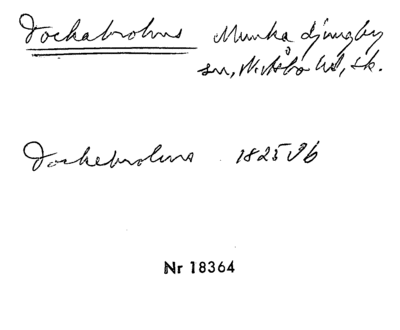 Dockabrohus Munka Ljungby
sn, N. Åsbo hd, Sk.
Dockebrohus 1825
Nr 18364